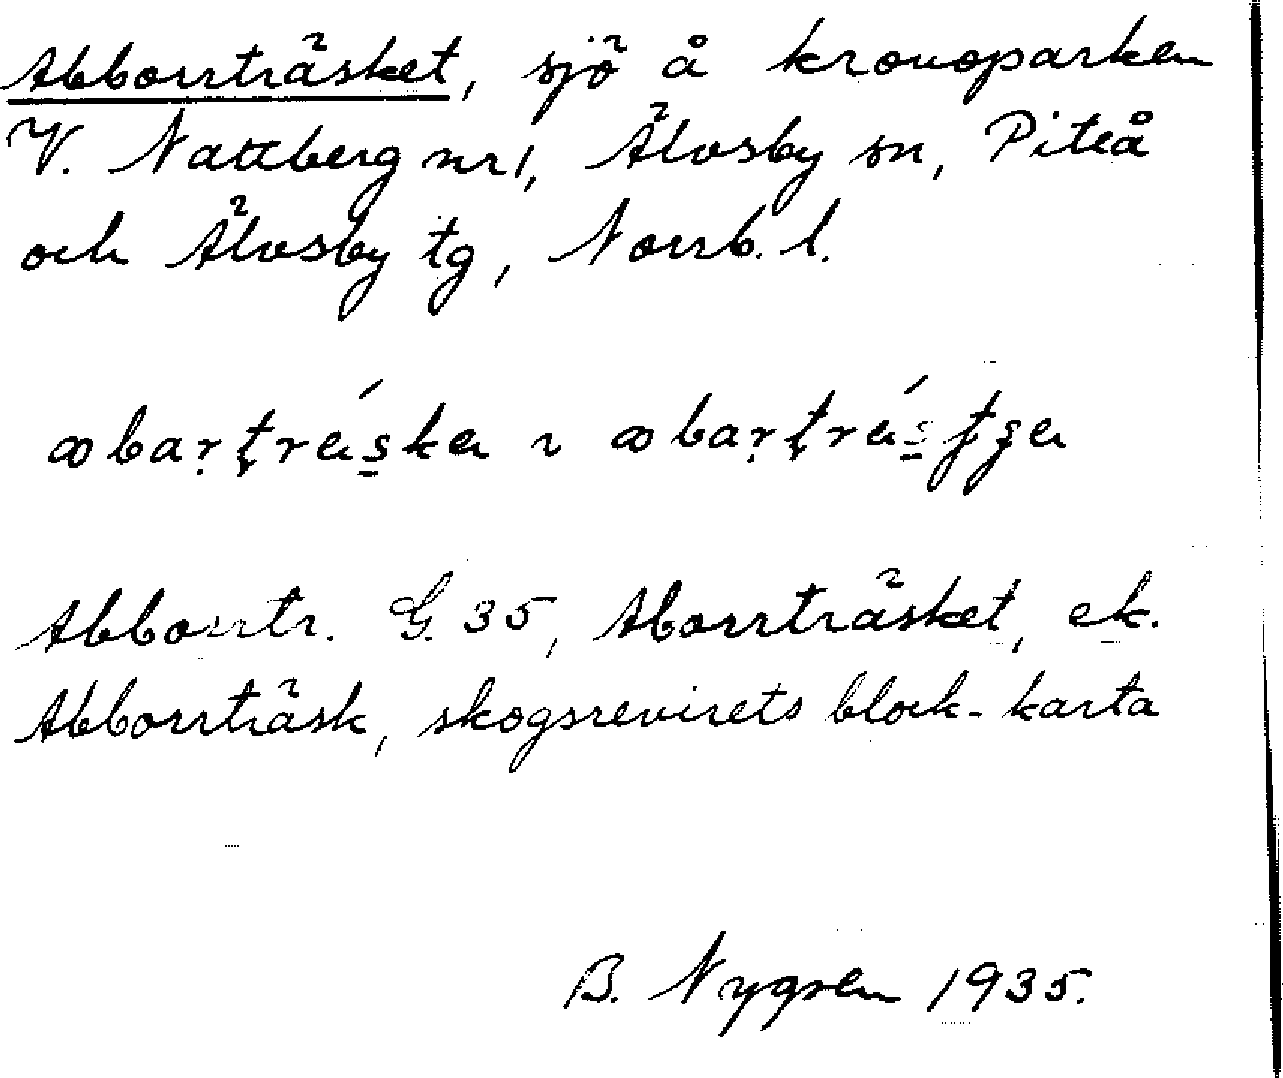 Abborrträsket, sjö å kronoparken
V. Nattberg nr 1, Älvsby sn, Piteå
och Älvsby tg, Norrb. l.
Abborrtr. G. 35, Aborrträsket, ek.
Abborrträsk, skogsrevirets block-karta
B. Nygren 1935.